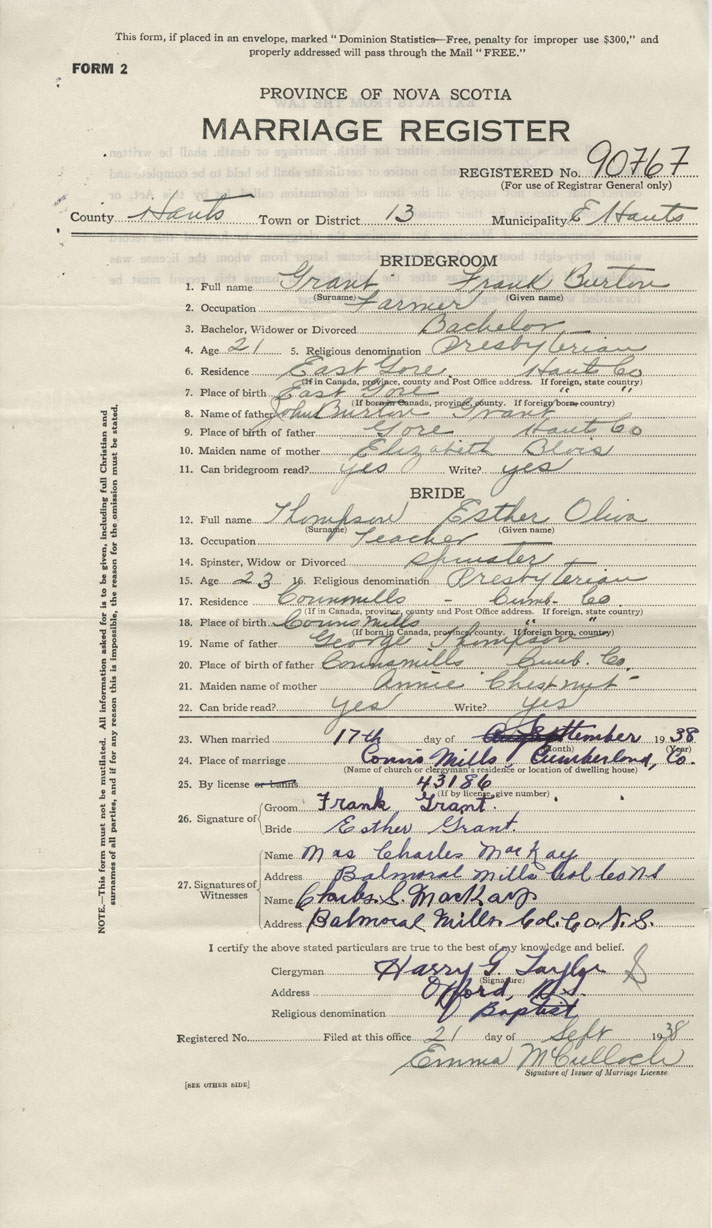 This form, if placed in an envelope, marked "Dominion Statistics—Free, penalty for improper use $300," and
properly addressed will pass through the Mail "FREE."
FORM 2
PROVINCE OF NOVA SCOTIA
MARRIAGE REGISTER
REGISTERED No. 90767
(For use of Registrar General only)
County Hants Town or District 13 Municipality E Hants
BRIDEGROOM
1. Full name Grant Frank Burton
(Surname) (Given name)
2. Occupation Farmer
3. Bachelor, Widower or Divorced Bachelor
4. Age 21 5. Religious denomination Presbyterian
6. Residence East Gore Hants Co
(If in Canada, province, county and Post Office address. If foreign, state country)
7. Place of birth East Gore " "
(If born in Canada, province, county. If foreign born, country)
8. Name of father John Burton Grant
9. Place of birth of father Gore Hants Co
10. Maiden name of mother Elizabeth Blois
11. Can bridegroom read? yes Write? yes
BRIDE
12. Full name Thompson Esther Oliva
(Surname) (Given name)
13. Occupation Teacher
14. Spinster, Widow or Divorced Spinster
15. Age 23 16. Religious denomination Presbyterian
17. Residence Counsmills - Cumb. Co.
(If in Canada, province, county and Post Office address. If foreign, state country)
18. Place of birth Couns Mills " "
(If born in Canada, province, county. If foreign born, country)
19. Name of father George Thompson
20. Place of birth of father Counsmills Cumb. Co.
21. Maiden name of mother Annie Chestnut
22. Can bride read? yes Write? yes
23. When married 17th day of September 1938
(Month) (Year)
24. Place of marriage Conn's Mills, Cumberland, Co.
(Name of church or clergyman's residence or location of dwelling house)
25. By license or banns 43186
(If by license, give number)
26. Signature of
Groom Frank Grant.
Bride Esther Grant.
27. Signatures of Witnesses
Name Mrs Charles MacKay
Address Balmoral Mills Col Co NS
Name Charles S. MacKay
Address Balmoral Mills Col. Co. N.S.
I certify the above stated particulars are true to the best of my knowledge and belief.
Clergyman Harry G. Taylor
(Signature)
Address Oxford, N.S.
Religious denomination Baptist
Registered No. Filed at this office 21 day of Sept 1938
Emma McCulloch
Signature of Issuer of Marriage License.
[SEE OTHER SIDE]
NOTE.—This form must not be mutilated. All information asked for is to be given, including full Christian and
surnames of all parties, and if for any reason this is impossible, the reason for the omission must be stated.